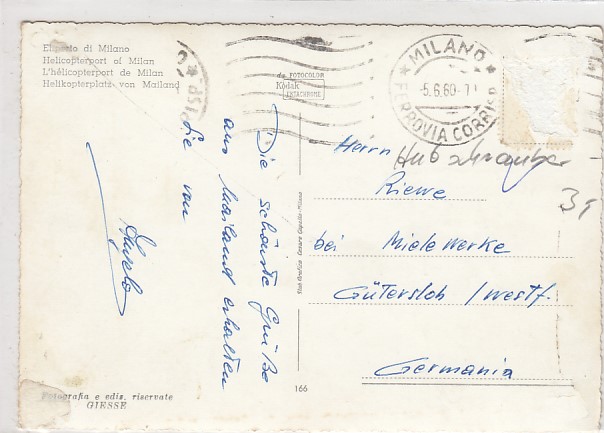 Eliporto di Milano
Helicopterport of Milan
L'hélicopterport de Milan
Helikopterplatz von Mailand
da FOTOCOLOR
Kodak
EKTACHROME
MILANO
-5.6.60-
FERROVIA CORRISP
Die schönste Grüße
aus Mailand erhalten
Sie von
Angelo
Herrn
Hubschrauber
Riewe
bei Mielewerke
Gütersloh / Westf.
Germania
166
Fotografia e ediz. riservate
GIESSE